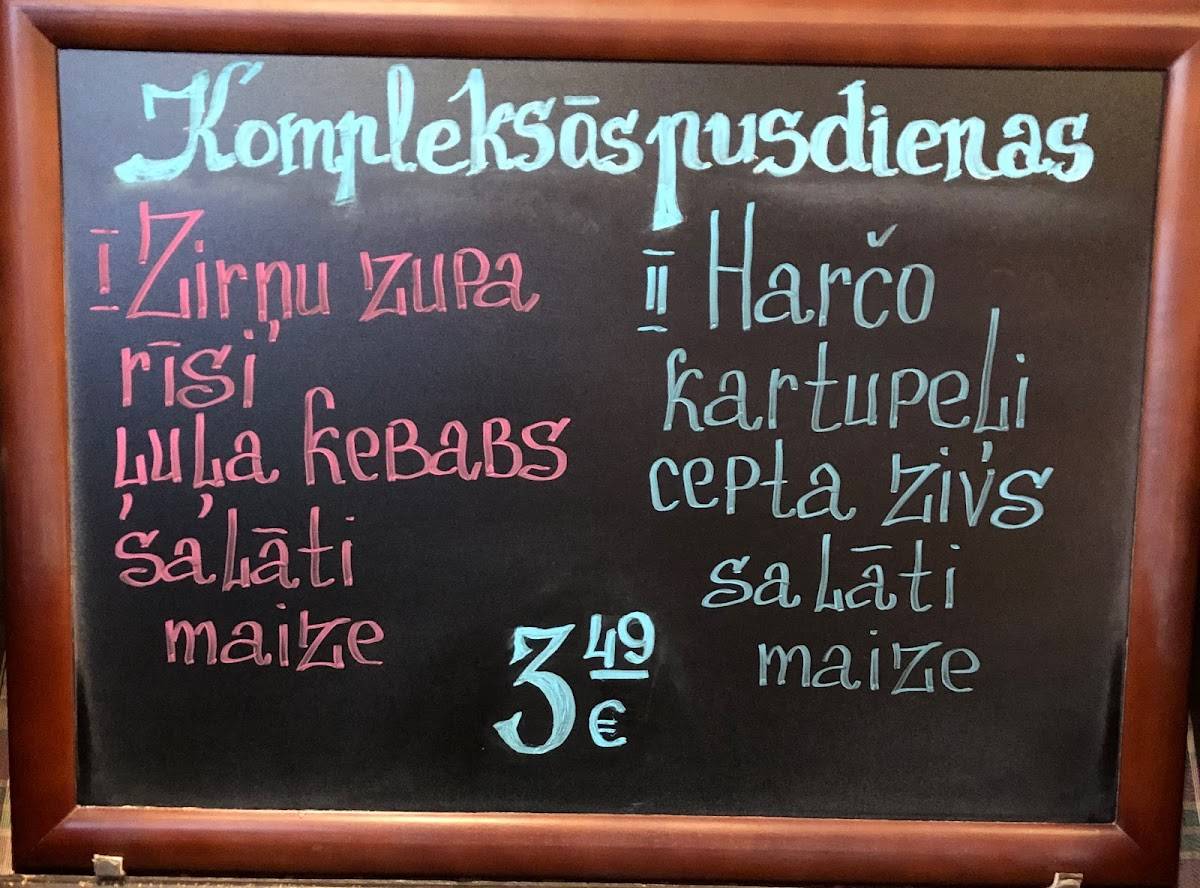 Kompleksās pusdienas
I Zirņu zupa
rīsi
ļuļa kebabs
salāti
maize
II Harčo
kartupeļi
cepta zivs
salāti
maize
3 49 €